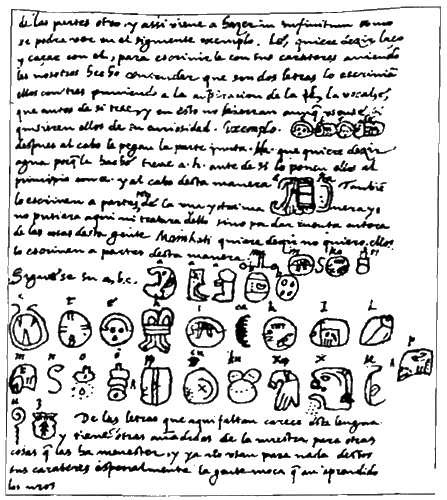 de las partes otro, y assi viene a hazer in infinitum como
se podra ver en el siguiente exemplo. Lé, quiere dezir laço
y caçar con el, para escrivirle con sus carateres aviendo
les nosotros hecho entender que son dos letras lo escrivian
ellos con tres puniendo a la aspiracion de la l, la vocal é,
que antes de si trae, y en esto no hierran aunq̃ usense, si
quisieren ellos de su curiosidad. Exemplo.
despues al cabo le pegan la parte junta. Ha. que quiere dezir
agua porq̃ la haché tiene a. h. ante de si lo ponen ellos al
principio con a. y al cabo desta manera ha Tambiē
lo escriven a partes, de la una y otra manera, yo
no pusiera aqui ni tratara dello sino por dar cuenta entera
de las cosas desta gente Mainkati quiere dezir no quiero, ellos
lo escriven a partes desta manera.
Siguese su a, b, c.
m n o ó pp cu ku x x u
De las letras que aqui faltan carece esta lengua
y tiene otras añadidas de la nuestra para otras
cosas q̃ las ha menester, y ya no usan para nada destos
sus carateres especialmente la gente moça q̃ an aprendido
los nros